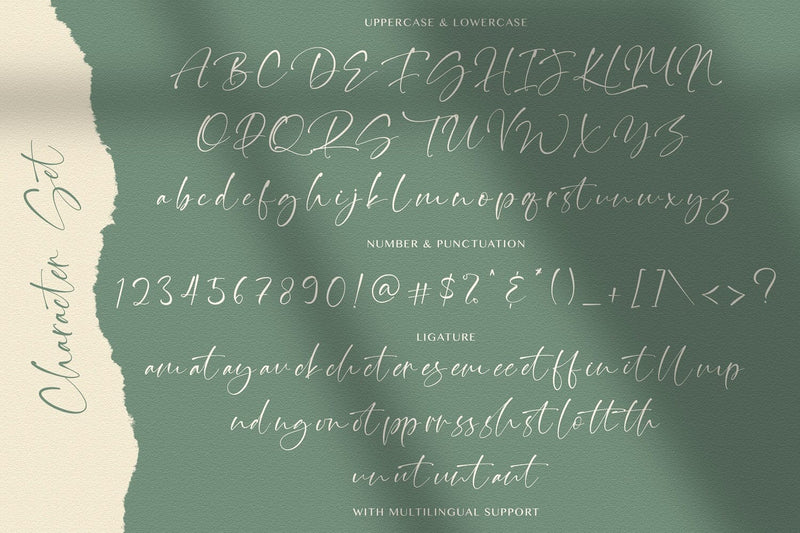 Character Set
UPPERCASE & LOWERCASE
A B C D E F G H I J K L M N
O P Q R S T U V W X Y Z
a b c d e f g h i j k l m n o p q r s t u v w x y z
NUMBER & PUNCTUATION
1 2 3 4 5 6 7 8 9 0 ! @ # $ % ^ & * ( ) _ + [ ] \ < > ?
LIGATURE
am at ay au ck ch et er es em ee ct ff in it ll mp
nd ng on ot pp rr ss sh st lo tt th
un ut unt ant
WITH MULTILINGUAL SUPPORT